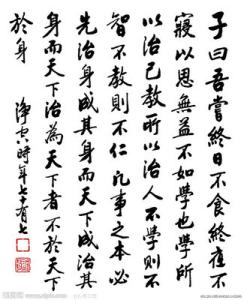 子曰吾嘗終日不食終夜不
寢以思無益不如學也學所
以治己教所以治人不學則不
智不教則不仁凡事之本必
先治身成其身而天下成治其
身而天下治為天下者不於天下
於身
淨空時年七十有七